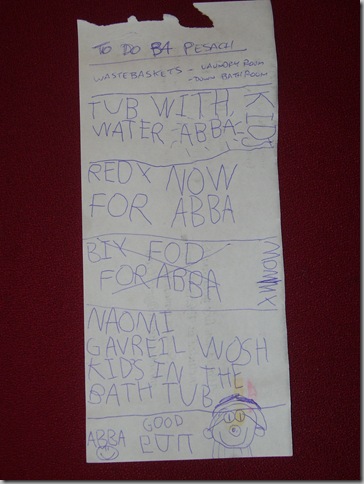 TO DO B4 PESACH
WASTEBASKETS - LAUNDRY ROOM
- DOWN BATHROOM
TUB WITH
WATER ABBA
KIDS
REDY NOW
FOR ABBA
BIY FOD
FOR ABBA
MOMMY
NAOMI
GAVREIL WOSH
KIDS IN THE
BATH TUB
ABBA
GOOD